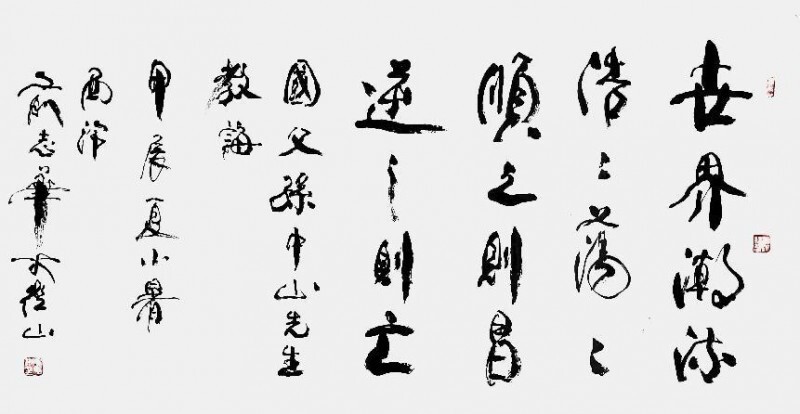 世界潮流
浩〻蕩〻
順之則昌
逆之則亡
國父孫中山先生
教誨
甲辰夏小暑
志華 山